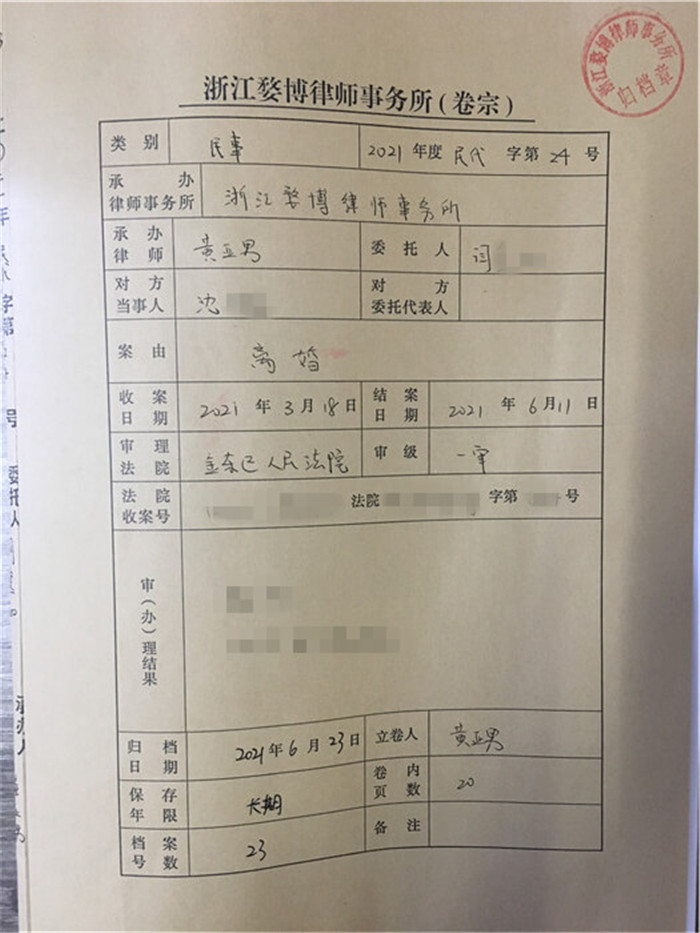 浙江婺博律师事务所
归档章
浙江婺博律师事务所(卷宗)
类别 民事 2021 年度 民代 字第 24 号
承办
律师事务所 浙江婺博律师事务所
承办
律师 黄亚男 委托人 闫
对方
当事人 沈 对方
委托代表人
案由 离婚
收案
日期 2021 年 3 月 18 日 结案
日期 2021 年 6 月 11 日
审理
法院 金东区人民法院 审级 一审
法院
收案号 法院 字第 号
审(办)理结果
归档
日期 2021 年 6 月 23 日 立卷人 黄亚男
保存
年限 长期 卷内
页数 20
档案
号数 23 备注
字第
号
委托人
承办人